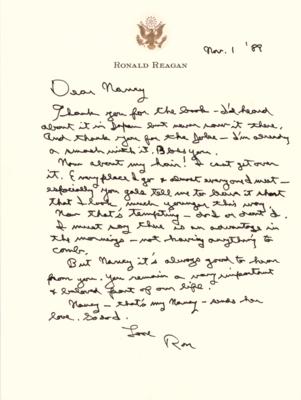 Nov. 1 '89
RONALD REAGAN
Dear Nancy
Thank you for the book – I'd heard
about it in Japan but never saw it there.
And thank you for the joke – I'm already
a smash with it. Bless you.
Now about my hair! I can't get over
it. Every place I go & almost everyone I meet –
especially you gals tell me to leave it short
that I look much younger this way.
Now that's tempting – do I or don't I.
I must say there is an advantage in
the mornings – not having anything to
comb.
But Nancy it's always good to hear
from you. You remain a very important
& beloved part of our life.
Nancy – that's my Nancy – sends her
love. So do I.
Love
Ron